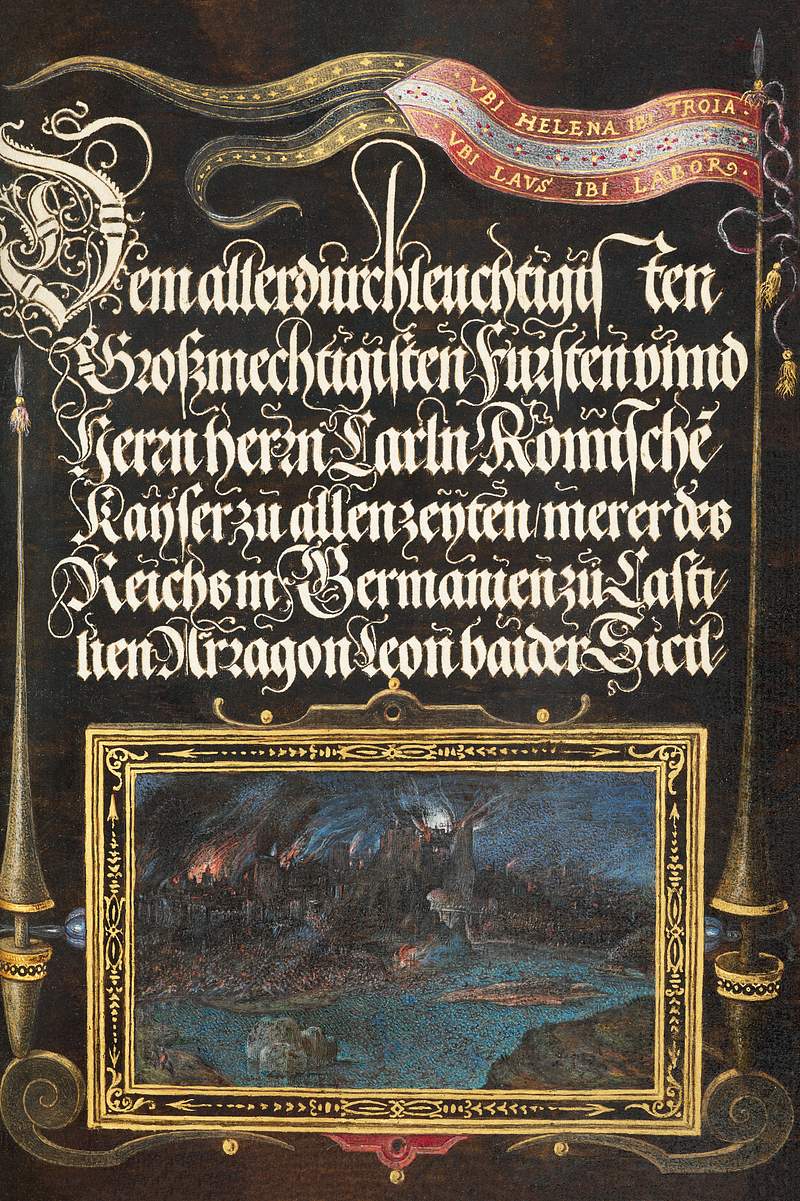 VBI HELENA IBI TROIA·
VBI LAVS IBI LABOR
Dem allerdurchleuchtigisten
Großmechtigisten Fursten vnnd
Herrn herrn Carln Römischē
Kaÿser zu allen zeÿten / merer des
Reichs in Germanien zu Casti
lien Arragon Leon baider Sicil